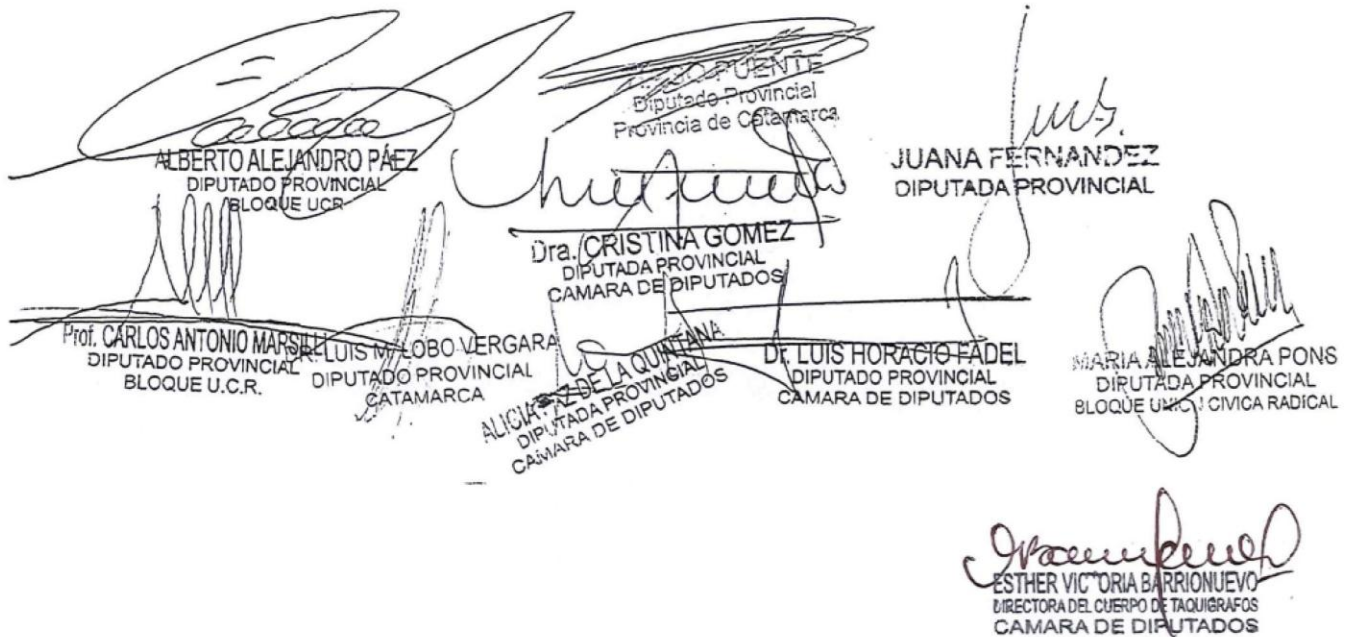 PUENTE
Diputado Provincial
Provincia de Catamarca
ALBERTO ALEJANDRO PÁEZ
DIPUTADO PROVINCIAL
BLOQUE UCR
JUANA FERNANDEZ
DIPUTADA PROVINCIAL
Dra. CRISTINA GOMEZ
DIPUTADA PROVINCIAL
CAMARA DE DIPUTADOS
Prof. CARLOS ANTONIO
DIPUTADO PROVINCIAL
BLOQUE U.C.R.
LUIS M. LOBO VERGARA
DIPUTADO PROVINCIAL
CATAMARCA
ALICIA PAZ DE LA QUINTANA
DIPUTADA PROVINCIAL
CAMARA DE DIPUTADOS
Dr. LUIS HORACIO FADEL
DIPUTADO PROVINCIAL
CAMARA DE DIPUTADOS
MARIA ALEJANDRA PONS
DIPUTADA PROVINCIAL
BLOQUE UNION CIVICA RADICAL
ESTHER VICTORIA BARRIONUEVO
DIRECTORA DEL CUERPO DE TAQUIGRAFOS
CAMARA DE DIPUTADOS